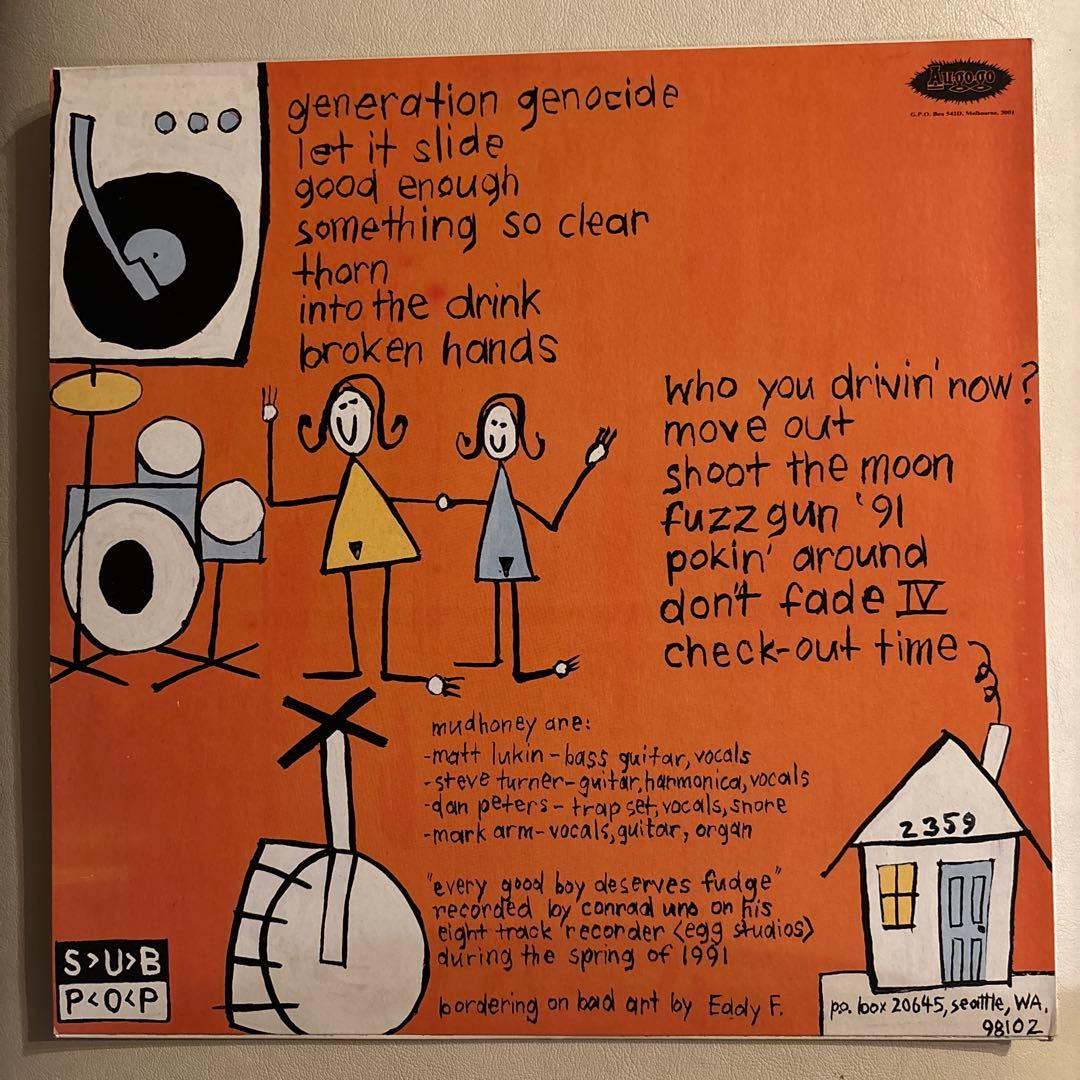 generation genocide
let it slide
good enough
something so clear
thorn
into the drink
broken hands
Au-go-go
G.P.O. Box 542D, Melbourne, 3001
who you drivin' now?
move out
shoot the moon
fuzzgun '91
pokin' around
don't fade IV
check-out time
mudhoney are:
-matt lukin-bass guitar, vocals
-steve turner-guitar, harmonica, vocals
-dan peters-trap set, vocals, snore
-mark arm-vocals, guitar, organ
"every good boy deserves fudge"
recorded by conrad uno on his
eight track recorder <egg studios>
during the spring of 1991
bordering on bad art by Eddy F.
S>U>B
P<O<P
2359
p.o. box 20645, seattle, WA,
98102